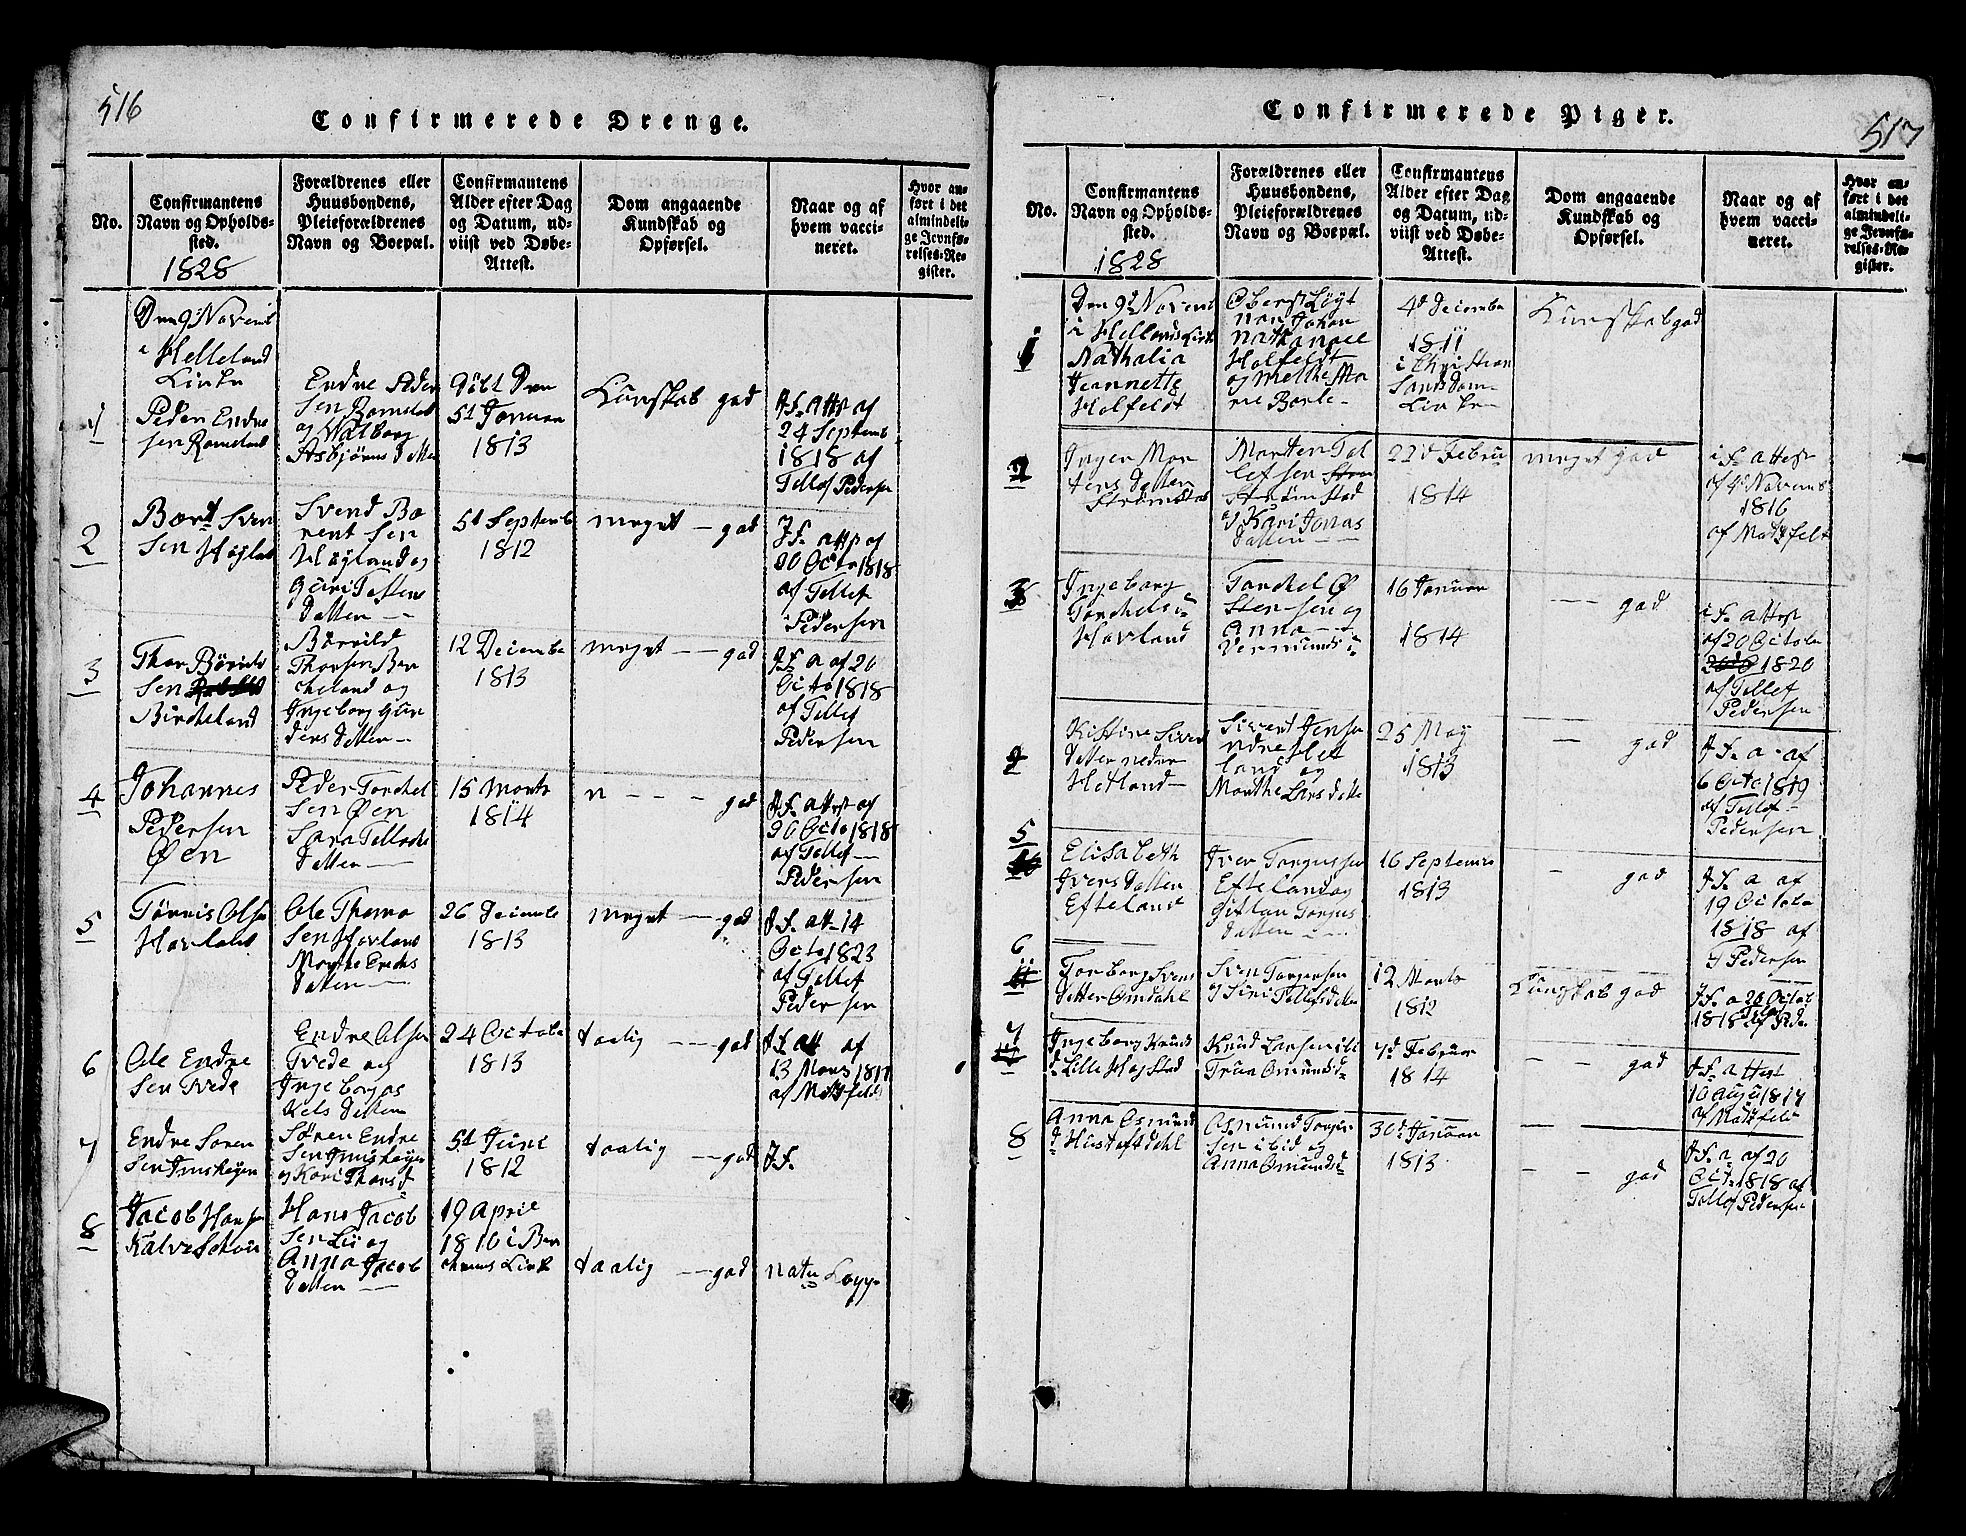 516
Confirmerede Drenge.
No.
Confirmantens
Navn og Opholds-
sted.
1828
Forældrenes eller
Huusbondens,
Pleieforældrenes
Navn og Boepæl.
Confirmantens
Alder efter Dag
og Datum, ud-
viist ved Døbe-
Attest.
Dom angaaende
Kundskab og
Opførsel.
Naar og af
hvem vacci-
neret.
Hvor an-
ført i det
almindeli-
ge Jevnfø-
relses-Re-
gister.
Den 9d Novemb
i Helleland
Kirke
1
Peder Endre
sen Rameland
Endre Peder
sen Rameland
og Walborg
Asbjørns Datter
Døbt Den
5d Januar
1813
Kunskab god
J.S. Attst af
24 Septemb
1818 af
Tellef Pedersen
2
Bært Sven
sen Høyland
Svend Bæ
rent sen
Høyland og
Guri Tostens
Datter
5d Septemb
1812
meget - god
J.S. attst af
20 Octo 1818
af Tellef
Pedersen
3
Thor Børild
sen
Bircheland
Børrild
Thorsen Ber
cheland og
Ingeborg Gun
ders Datter
12 Decembe
1813
meget - - god
J.S. a af 20
Octo 1818
af Tellef
Pedersen
4
Johannes
Pedersen
Øen
Peder Torchel
sen Øen
Sara Tellochs
Datter
15 Marts
1814
n - - - god
J.S. attst af
20 Octo 1818
af Tellef
Pedersen
5
Tønnis Olsen
Havland
Ole Thoma
sen Havland
Marthe Erichs
Datter
26 Decembe
1813
meget - god
J.S. att 14
Octo 1823
af Tellef
Pedersen
6
Ole Endre
sen Tvede
Endre Olsen
Tvede og
Ingeborg as
kels Datter
24 Octobe
1813
taalig - - god
J.S. att af
13 Mars 1817
af Matzfeldt
7
Endre Søren
sen
Søren Endre
sen
og Kari Thors d
5d Juni
1812
taalig - god
J.S.
8
Jacob Hansen
Hans Jacob
sen Lii og
Anna Jacob
Datter
19 April
1810 i Ber
Kirke
taalig - - god
natu Kopp
517
Confirmerede Piger.
No.
Confirmantens
Navn og Opholds-
sted.
1828
Forældrenes eller
Huusbondens,
Pleieforældrenes
Navn og Boepæl.
Confirmantens
Alder efter Dag
og Datum, ud-
viist ved Døbe-
Attest.
Dom angaaende
Kundskab og
Opførsel.
Naar og af
hvem vacci-
neret.
Hvor an-
ført i det
almindeli-
ge Jevnfø-
relses-Re-
gister.
1
Den 9d Novemb
i Hellelands Kirke
Nathalia
Jeannette
Holfeldt
Oberst Løyt
nan Johan
Nathanael
Holfeldt
og Methe Ma
rie Barle
4d Decembe
1811
i Christian
sands Dom
Kirke
Kunskab god
2
Inger Mor
tens Datter
Strømstad
Morten Tol
lefsen
Strømstad
og Kari Jonas
Datter
22d Febru
1814
meget god
i S. attest
af 4d Novemb
1816
af Matzfelt
3
Ingeborg
Torchels d
Havland
Torchel Ø
stensen og
Anna
Vermunds d
16 Januar
1814
- - god
i S. attest
af 20 Octobe
1820
af Tellef
Pedersen
4
Kistine Siverts
Datter nedre
Hetland
Sivert Jensen
nedre Het
land og
Marthe Lars datter
25 May
1813
- god
J.S. a - af
6 Octo 1819
af Tellef
Pedersen
5
Elisabeth
Ivers Datter
Efteland
Iver Torgussen
Efteland og
Torgus
Datter
16 Septembe
1813
- god
J.S. a af
19 Octobe
1818 af
T Pedersen
6
Torborg Svens
Datter Omdahl
Sven Torgersen
og Siri Tollefsdatter
12 Marts
1812
Kunskab god
J.S. a 20 Octob
1818 af Tellef Pede
7
Ingeborg Knuds
d. Lille Hagstad
Knud Larsen ibi
Truu Omunds d
7d Februar
1814
- - god
J.S. attest
10 Augu 1817
af Matzfeldt
8
Anna Osmund
d.
Osmund Torger
sen ibid og
Anna Omunds d
30d Januar
1813
- - god
J.S. a af 20
Oct. 1818 af
Tollef Pedersen